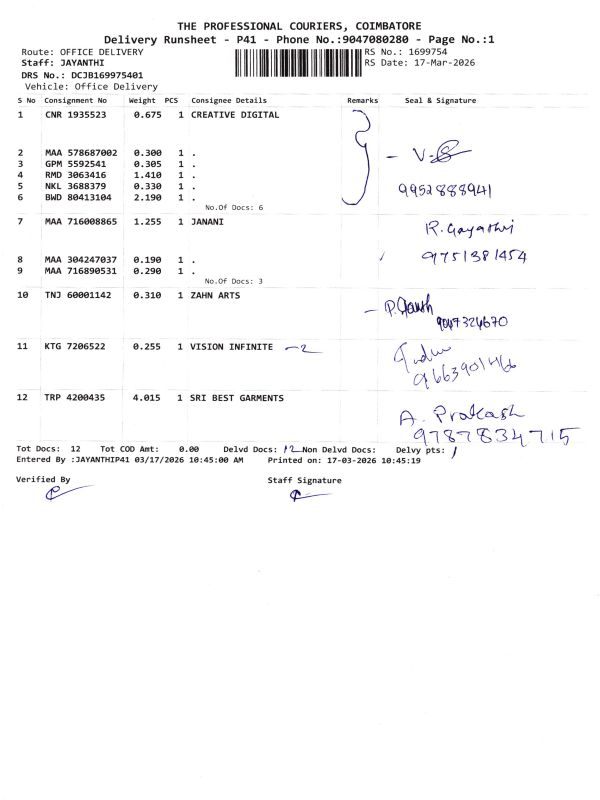 THE PROFESSIONAL COURIERS, COIMBATORE
Delivery Runsheet - P41 - Phone No.:9047080280 - Page No.:1
Route: OFFICE DELIVERY RS No.: 1699754
Staff: JAYANTHI RS Date: 17-Mar-2026
DRS No.: DCJB169975401
Vehicle: Office Delivery
S No Consignment No Weight PCS Consignee Details Remarks Seal & Signature
1 CNR 1935523 0.675 1 CREATIVE DIGITAL
2 MAA 578687002 0.300 1 .
3 GPM 5592541 0.305 1 .
4 RMD 3063416 1.410 1 .
5 NKL 3688379 0.330 1 .
9952888941
6 BWD 80413104 2.190 1 .
No.Of Docs: 6
7 MAA 716008865 1.255 1 JANANI
R. Gayathri
8 MAA 304247037 0.190 1 . 9751381454
9 MAA 716890531 0.290 1 .
No.Of Docs: 3
10 TNJ 60001142 0.310 1 ZAHN ARTS
11 KTG 7206522 0.255 1 VISION INFINITE - 2
9663901466
12 TRP 4200435 4.015 1 SRI BEST GARMENTS
A. Prakash
9787834715
Tot Docs: 12 Tot COD Amt: 0.00 Delvd Docs: 12 Non Delvd Docs: Delvy pts: 1
Entered By :JAYANTHIP41 03/17/2026 10:45:00 AM Printed on: 17-03-2026 10:45:19
Verified By Staff Signature